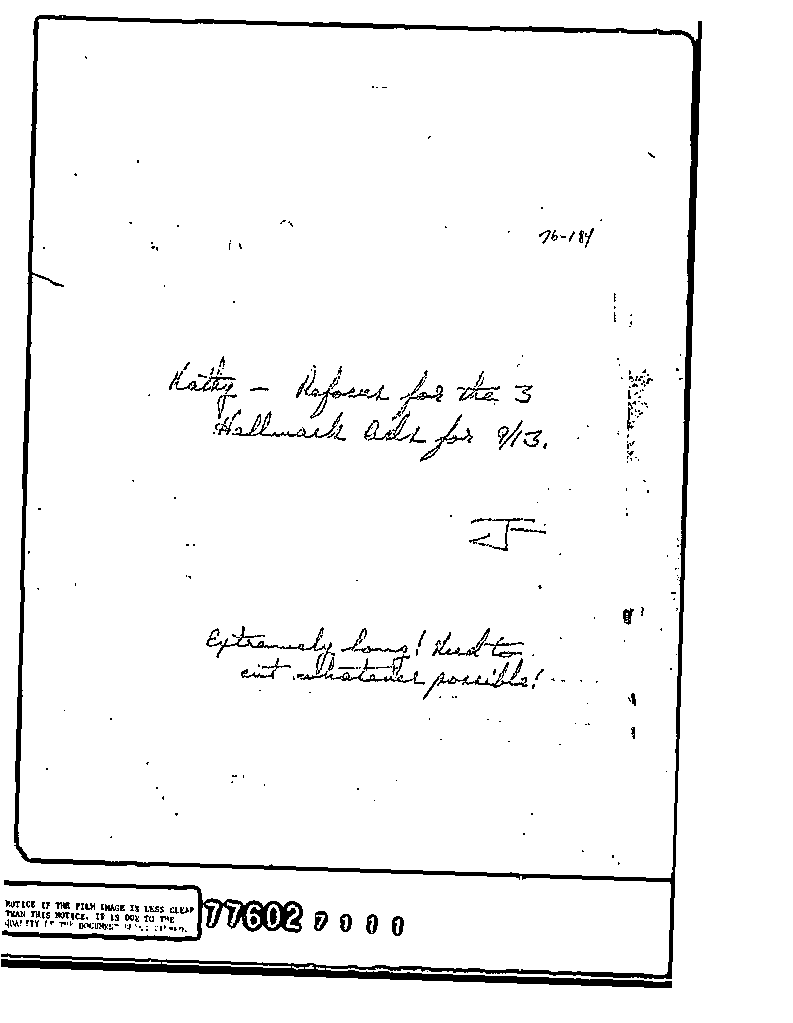 76-184
Kathy - Refocus for the 3
Hallmark Ads for 9/13.
J
Extremely long! Need to
cut whatever possible!
NOTICE IF THE FILM IMAGE IS LESS CLEAR
THAN THIS NOTICE, IT IS DUE TO THE
QUALITY OF THE DOCUMENT
77602 7000